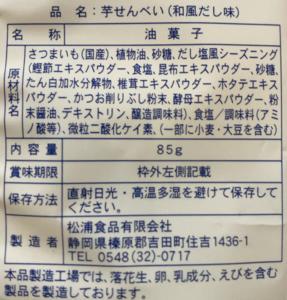 品 名：芋せんべい（和風だし味）
名称 油菓子
原材料名 さつまいも(国産)、植物油、砂糖、だし塩風シーズニング
(鰹節エキスパウダー、食塩、昆布エキスパウダー、砂糖、
たん白加水分解物、椎茸エキスパウダー、ホタテエキス
パウダー、かつお削りぶし粉末、酵母エキスパウダー、粉
末醤油、デキストリン、醸造調味料)、食塩／調味料(アミ
ノ酸等)、微粒二酸化ケイ素、(一部に小麦・大豆を含む)
内容量 85g
賞味期限 枠外左側記載
保存方法 直射日光・高温多湿を避けて保存して
ください。
製造者 松浦食品有限会社
静岡県榛原郡吉田町住吉1436-1
TEL 0548(32)-0717
本品製造工場では、落花生、卵、乳成分、えびを含む
製品を製造しております。